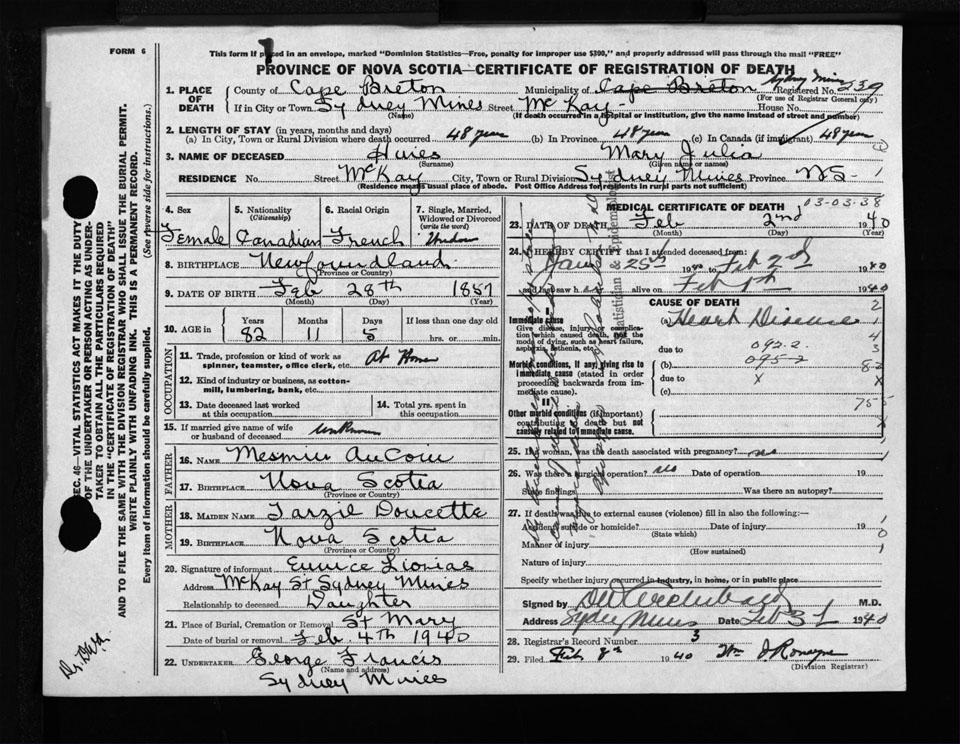 FORM 6
This form if placed in an envelope, marked "Dominion Statistics—Free, penalty for improper use $300," and properly addressed will pass through the mail "FREE"
PROVINCE OF NOVA SCOTIA—CERTIFICATE OF REGISTRATION OF DEATH
1. PLACE OF DEATH County of Cape Breton Municipality of Cape Breton Sydney Mines Registered No. 239
(For use of Registrar General only)
If in City or Town Sydney Mines Street McKay - House No.
(Name) (If death occurred in a hospital or institution, give the name instead of street and number)
2. LENGTH OF STAY (in years, months and days)
(a) In City, Town or Rural Division where death occurred 48 years (b) In Province 48 years (c) In Canada (if immigrant) 48 years
3. NAME OF DECEASED Hines Mary Julia
(Surname) (Given name or names)
RESIDENCE No. Street McKay City, Town or Rural Division Sydney Mines Province NS -
(Residence means usual place of abode. Post Office Address for residents in rural parts not sufficient)
4. Sex Female
5. Nationality (Citizenship) Canadian
6. Racial Origin French
7. Single, Married, Widowed or Divorced (write the word) Widow
8. BIRTHPLACE Newfoundland
(Province or Country)
9. DATE OF BIRTH Feb 28th 1857
(Month) (Day) (Year)
10. AGE in Years 82 Months 11 Days 5 If less than one day old hrs. or min.
OCCUPATION
11. Trade, profession or kind of work as spinner, teamster, office clerk, etc. At Home
12. Kind of industry or business, as cotton-mill, lumbering, bank, etc.
13. Date deceased last worked at this occupation
14. Total yrs. spent in this occupation
15. If married give name of wife or husband of deceased unknown
FATHER
16. NAME Mesmin AuCoin
17. BIRTHPLACE Nova Scotia
(Province or Country)
MOTHER
18. MAIDEN NAME Tarzil Doucette
19. BIRTHPLACE Nova Scotia
(Province or Country)
20. Signature of informant Eunice
Address McKay St Sydney Mines
Relationship to deceased Daughter
21. Place of Burial, Cremation or Removal St Mary
Date of burial or removal Feb. 4th 1940
22. UNDERTAKER George Francis
(Name and address)
Sydney Mines
MEDICAL CERTIFICATE OF DEATH 03-03-38
23. DATE OF DEATH Feb 2nd 1940
(Month) (Day) (Year)
24. I HEREBY CERTIFY that I attended deceased from:
Jan 25th 1940 to Feb 2nd 1940
and last saw h alive on Feb 1st 1940
CAUSE OF DEATH
Immediate cause
Give disease, injury or complication which caused death, not the mode of dying, such as heart failure, asphyxia, asthenia, etc.
(a) Heart Disease
due to 092.2
Morbid conditions, if any, giving rise to immediate cause (stated in order proceeding backwards from immediate cause).
(b) 095-2
due to x
(c)
Other morbid conditions (if important) contributing to death but not causally related to immediate cause.
25. If a woman, was the death associated with pregnancy? no
26. Was there a surgical operation? no Date of operation 19
State findings Was there an autopsy?
27. If death was due to external causes (violence) fill in also the following:—
Accident, suicide or homicide? Date of injury 19
(State which)
Manner of injury
(How sustained)
Nature of injury
Specify whether injury occurred in industry, in home, or in public place
Signed by Archibald M.D.
Address Sydney Mines Date Feb 3 1940
28. Registrar's Record Number 3
29. Filed Feb 8th 1940 Wm J Romayne
(Division Registrar)
SEC. 46—VITAL STATISTICS ACT MAKES IT THE DUTY
OF THE UNDERTAKER OR PERSON ACTING AS UNDERTAKER TO OBTAIN ALL THE PARTICULARS REQUIRED
IN THE "CERTIFICATE OF REGISTRATION OF DEATH"
AND TO FILE THE SAME WITH THE DIVISION REGISTRAR WHO SHALL ISSUE THE BURIAL PERMIT.
WRITE PLAINLY WITH UNFADING INK. THIS IS A PERMANENT RECORD.
Every item of information should be carefully supplied. (See reverse side for instructions.)
Statistician & Epidemiologist